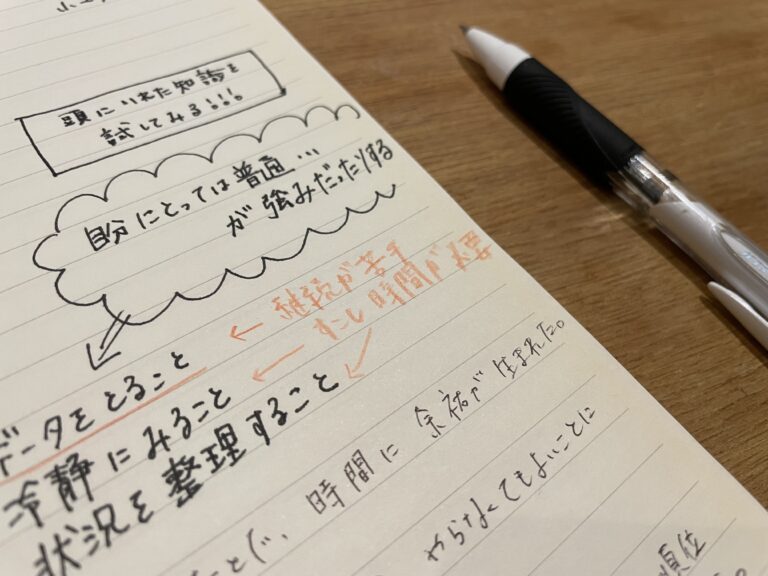 頭にいれた知識を
試してみる!!!
自分にとっては普通...
が強みだったりする
継続が苦手
すこし時間が必要
データをとること
冷静にみること
状況を整理すること
ことで、時間に余裕が生まれた。
やらなくてもよいことに
順位